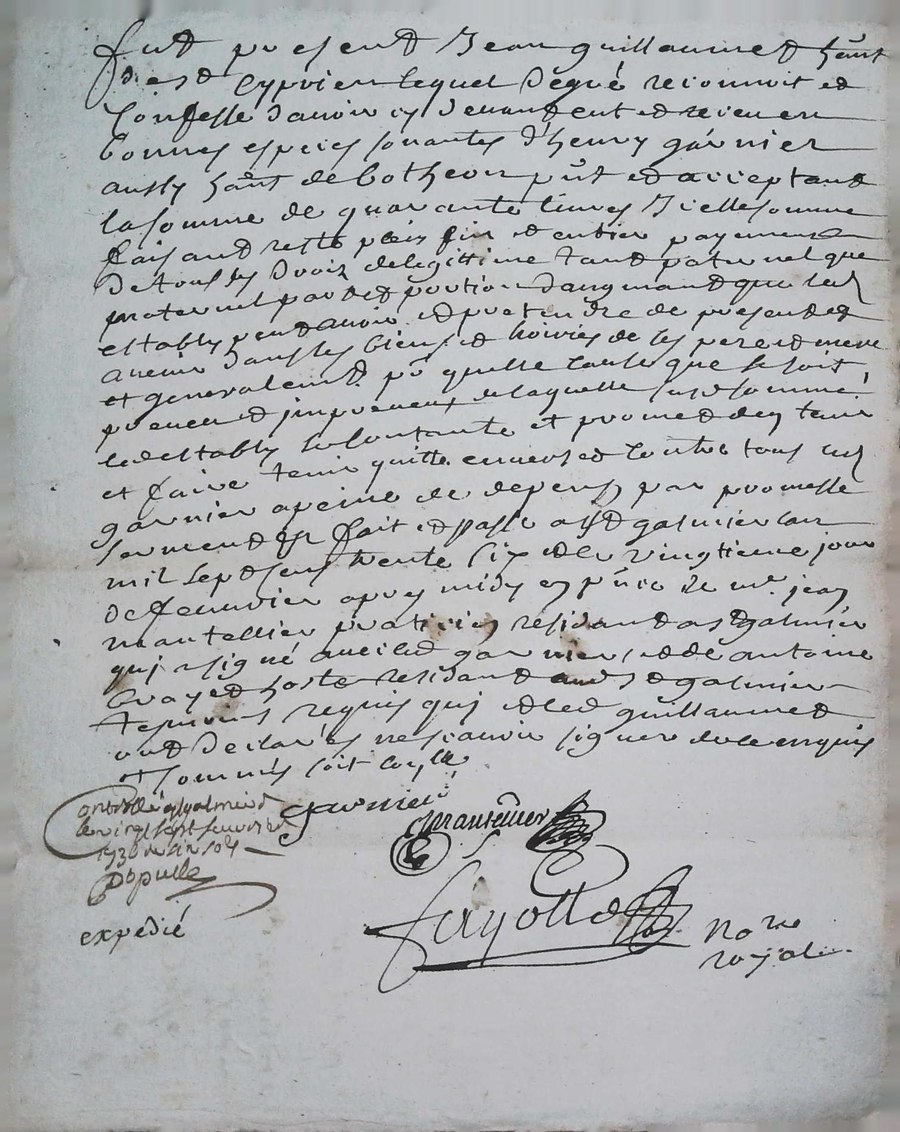 fut present Jean guillaumet hãnt
de st Cyprien lequel de gré reconnoit et
Confesse d'avoir cy devant eut et receu en
bonnes especes sonantes d'henry garnier
aussy hãnt de botheon pñt et acceptant
la somme de quarante livres Icelle somme
faisant reste plein fin et entier payement
de tous les droiz de legittime tant paternel que
maternel part et portion d'augmant que led
estably peut avoir et pretendre de present et
avenir dans les biens et hoiries de ses pere et mere
et generalemt pr quelle cause que se soit
preveue et impreveue de laquelle susd somme
led estably se contante et promet d'en tenir
et faire tenir quitte envers et contre tous led
garnier a peine de depens par promesse
serment &c fait et passé a st galmier lan
mil sept cens trente six et le vingtieme jour
de fevrier apres midy en pñce de mr jean
mantellier praticien residant a st galmier
qui a signé avec led garnier et de antoine
boyer hoste residant aud st galmier
temoins requis qui et led guillaumet
ont declarés ne scavoir signer de ce enquis
et sommés soit controllé
garnier
mantellier
Controllé a st galmier
le vingt sept fevrier
1736
expedié
fayolle
nore
royal